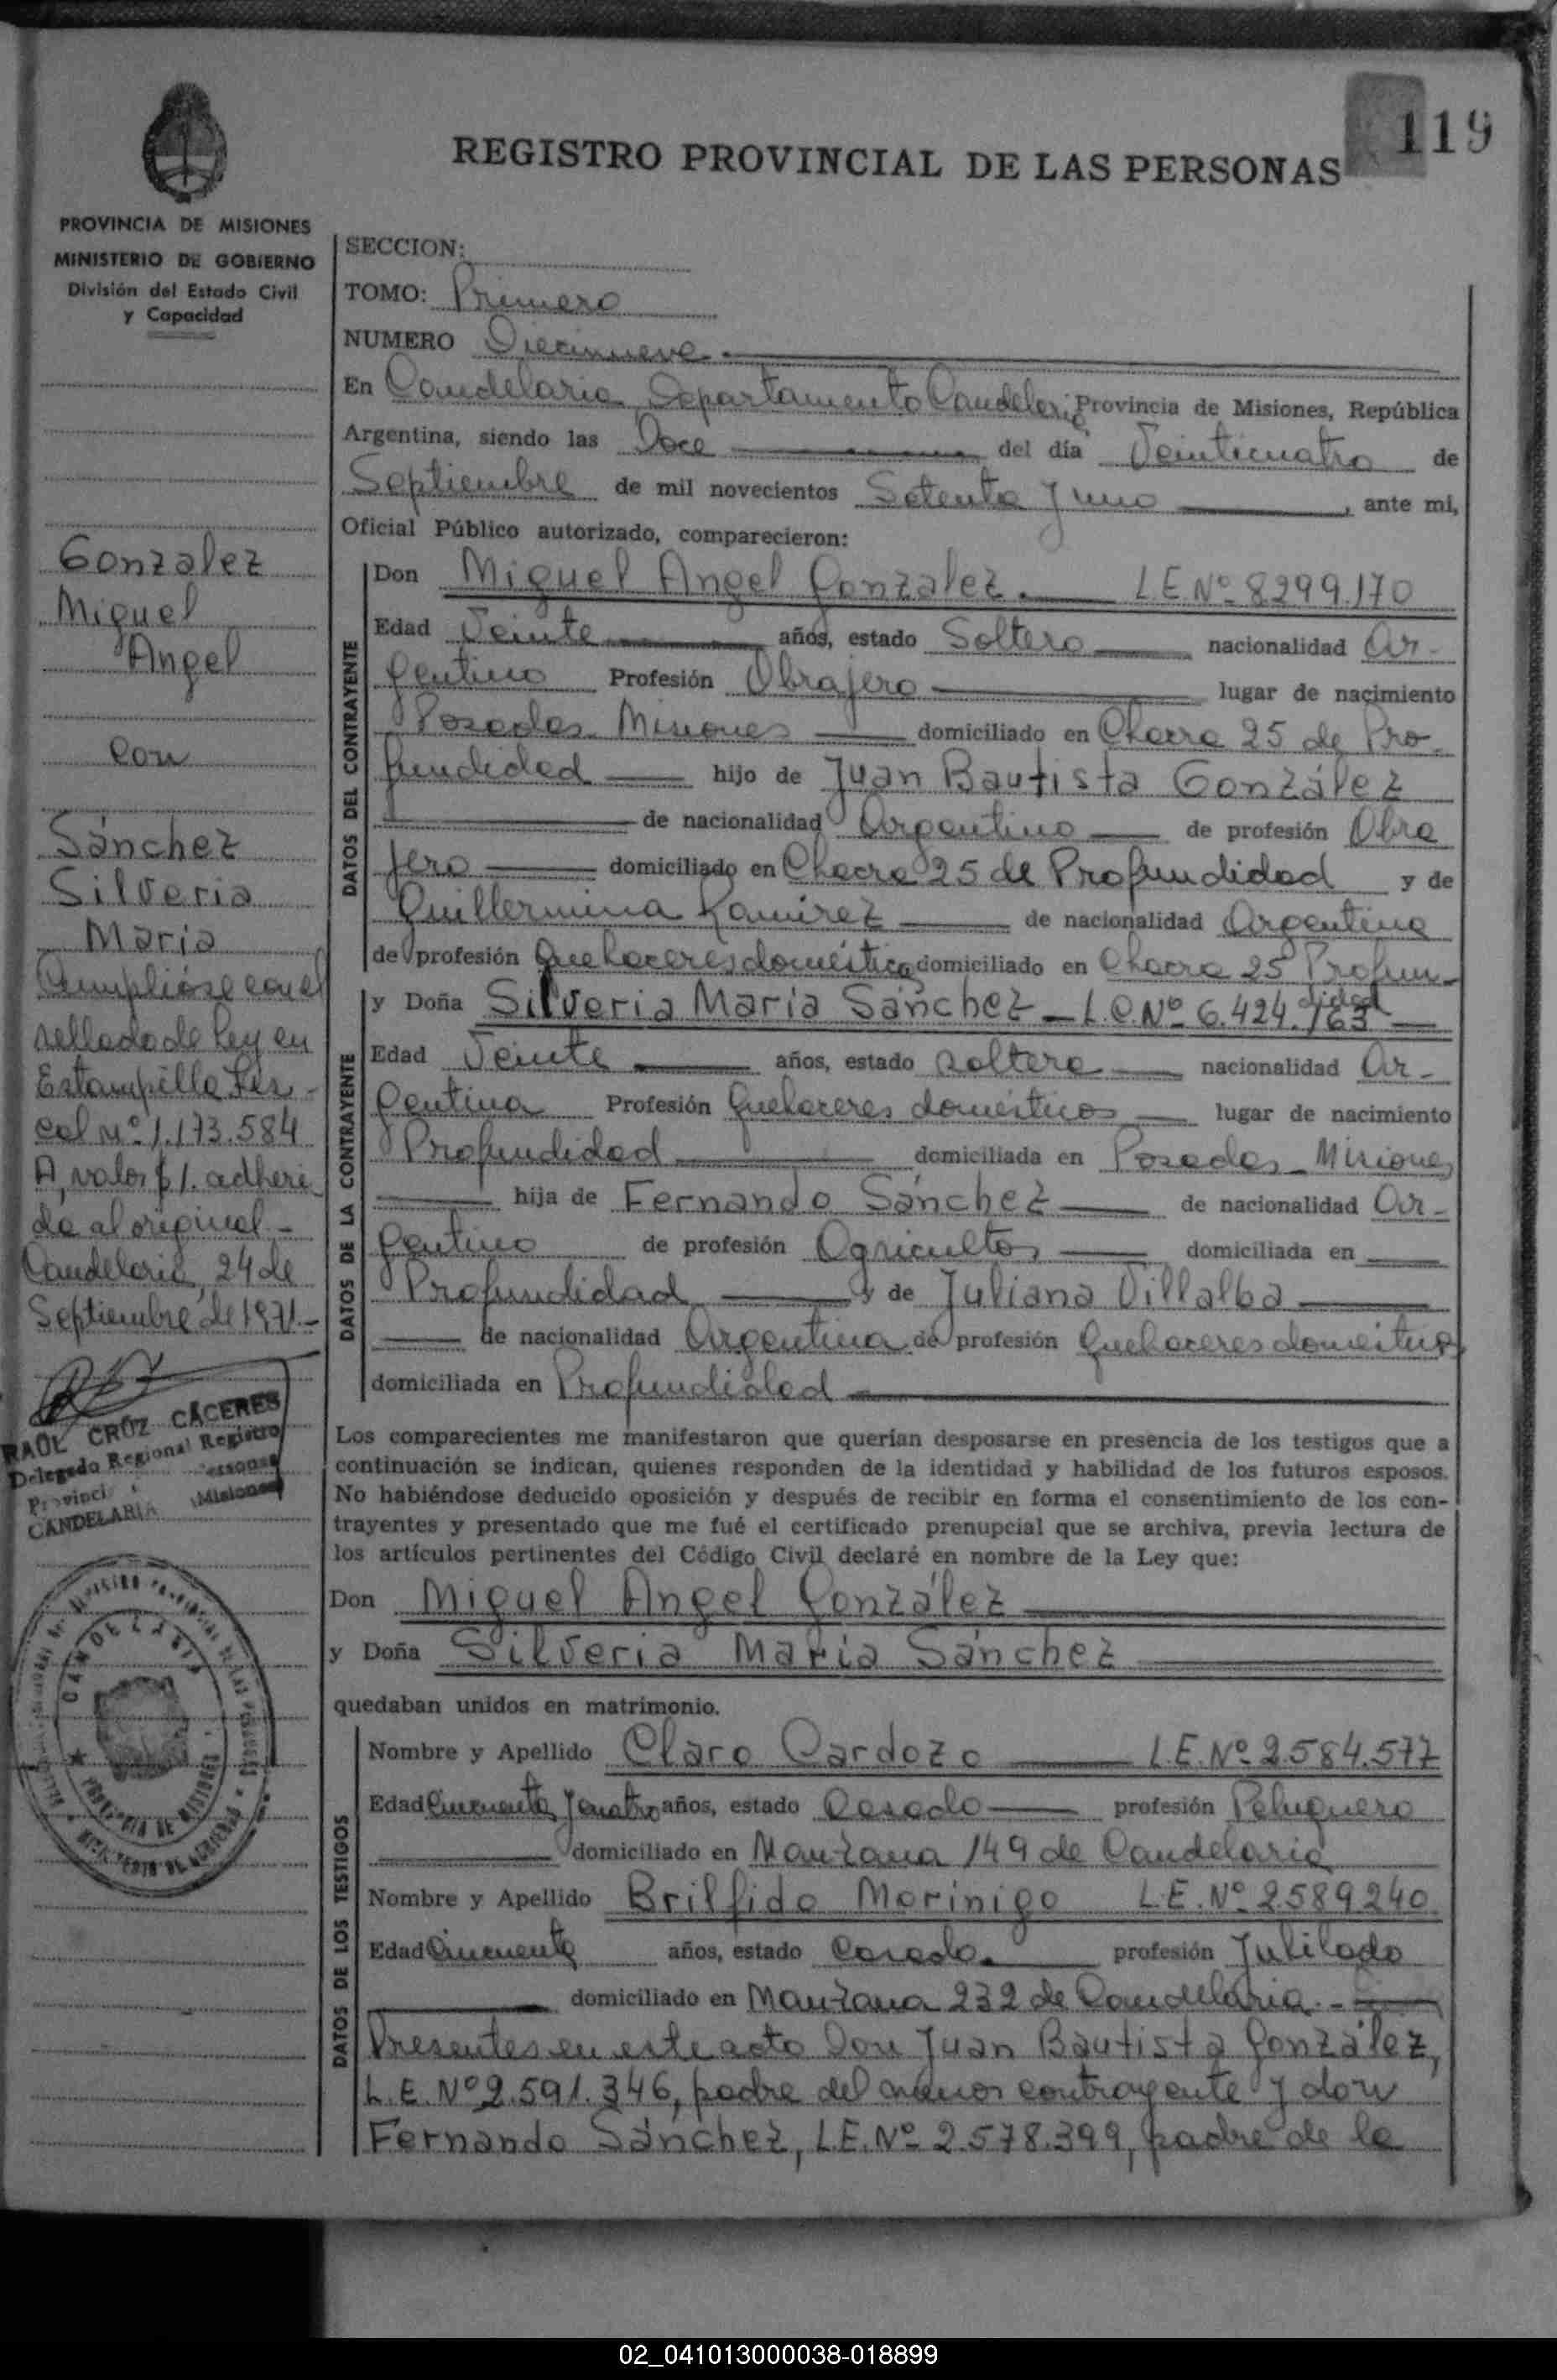 119
REGISTRO PROVINCIAL DE LAS PERSONAS
PROVINCIA DE MISIONES
MINISTERIO DE GOBIERNO
División del Estado Civil
y Capacidad
Gonzalez
Miguel
Angel
con
Sánchez
Silveria
Maria
Cumplióse con el
sellado de Ley en
Estampilla Fis-
cal nº 1.173.584
A, valor $ 1. adheri
da al original.-
Candelaria, 24 de
Septiembre de 1971.-
RAÚL CRUZ CÁCERES
Delegado Regional Registro
Provinci ersonas
CANDELARIA Misiones
CANDELARIA
PROVINCIA DE MISIONES
SECCION:
TOMO: Primero
NUMERO Diecinueve.
En Candelaria Departamento Candelaria Provincia de Misiones, República
Argentina, siendo las Doce del día Veinticuatro de
Septiembre de mil novecientos Setenta y uno, ante mi,
Oficial Público autorizado, comparecieron:
DATOS DEL CONTRAYENTE
Don Miguel Angel Gonzalez. L.E.Nº 8299.170
Edad Veinte años, estado Soltero nacionalidad Ar-
gentino Profesión Obrajero lugar de nacimiento
Posadas Misiones domiciliado en Chacra 25 de Pro-
fundidad hijo de Juan Bautista González
de nacionalidad Argentino de profesión Obra
jero domiciliado en Chacra 25 de Profundidad y de
Guillermina Ramirez de nacionalidad Argentina
de profesión Quehaceres domésticos domiciliado en Chacra 25 Profun-
didad
DATOS DE LA CONTRAYENTE
y Doña Silveria María Sánchez - L.C.Nº 6.424.763
Edad Veinte años, estado soltera nacionalidad Ar-
gentina Profesión Quehaceres domésticos lugar de nacimiento
Profundidad domiciliada en Posadas - Misiones
hija de Fernando Sánchez de nacionalidad Ar-
gentino de profesión Agricultor domiciliada en
Profundidad y de Juliana Villalba
de nacionalidad Argentina de profesión Quehaceres domésticos
domiciliada en Profundidad
Los comparecientes me manifestaron que querían desposarse en presencia de los testigos que a
continuación se indican, quienes responden de la identidad y habilidad de los futuros esposos.
No habiéndose deducido oposición y después de recibir en forma el consentimiento de los con-
trayentes y presentado que me fué el certificado prenupcial que se archiva, previa lectura de
los artículos pertinentes del Código Civil declaré en nombre de la Ley que:
Don Miguel Angel González
y Doña Silveria María Sánchez
quedaban unidos en matrimonio.
DATOS DE LOS TESTIGOS
Nombre y Apellido Claro Cardozo L.E.Nº 2.584.577
Edad Cincuenta y cuatro años, estado Casado profesión Peluquero
domiciliado en Manzana 149 de Candelaria
Nombre y Apellido Brilfido Morinigo L.E.Nº 2589240
Edad Cincuenta años, estado Casado. profesión Jubilado
domiciliado en Manzana 232 de Candelaria.-
Presentes en este acto Don Juan Bautista González,
L.E. Nº 2.591.346, padre del menor contrayente y don
Fernando Sánchez, L.E.Nº 2.578.399, padre de la
02_041013000038-018899